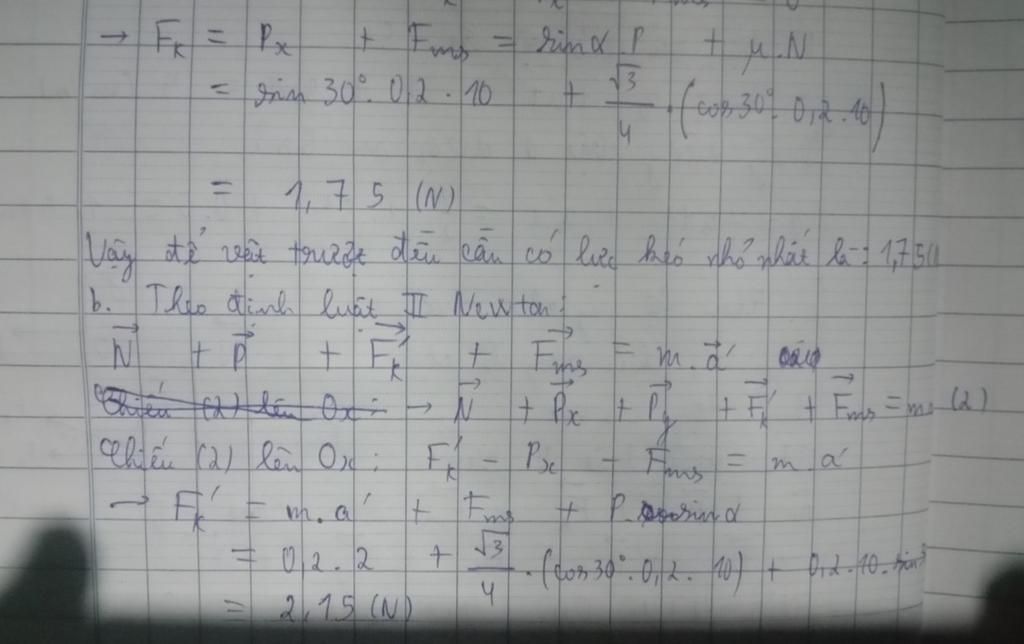 → Fk = Px + Fms = sinα P + μ.N
= sin 30°. 0,2 . 10 + √3/4 . (cos 30°. 0,2 . 10)
= 1,75 (N)
Vậy để vật trượt đều cần có lực kéo nhỏ nhất là: 1,75(
b. Theo định luật II Newton:
N⃗ + P⃗ + F⃗k' + F⃗ms = m.a⃗'
→ N⃗ + P⃗x + P⃗y + F⃗k' + F⃗ms = m (2)
Chiếu (2) lên Ox: Fk' - Px - Fms = m a'
→ Fk' = m.a' + Fms + P. sinα
= 0,2 . 2 + √3/4 . (cos 30°. 0,2 . 10) + 0,2 . 10 . sin3
= 2,15 (N)